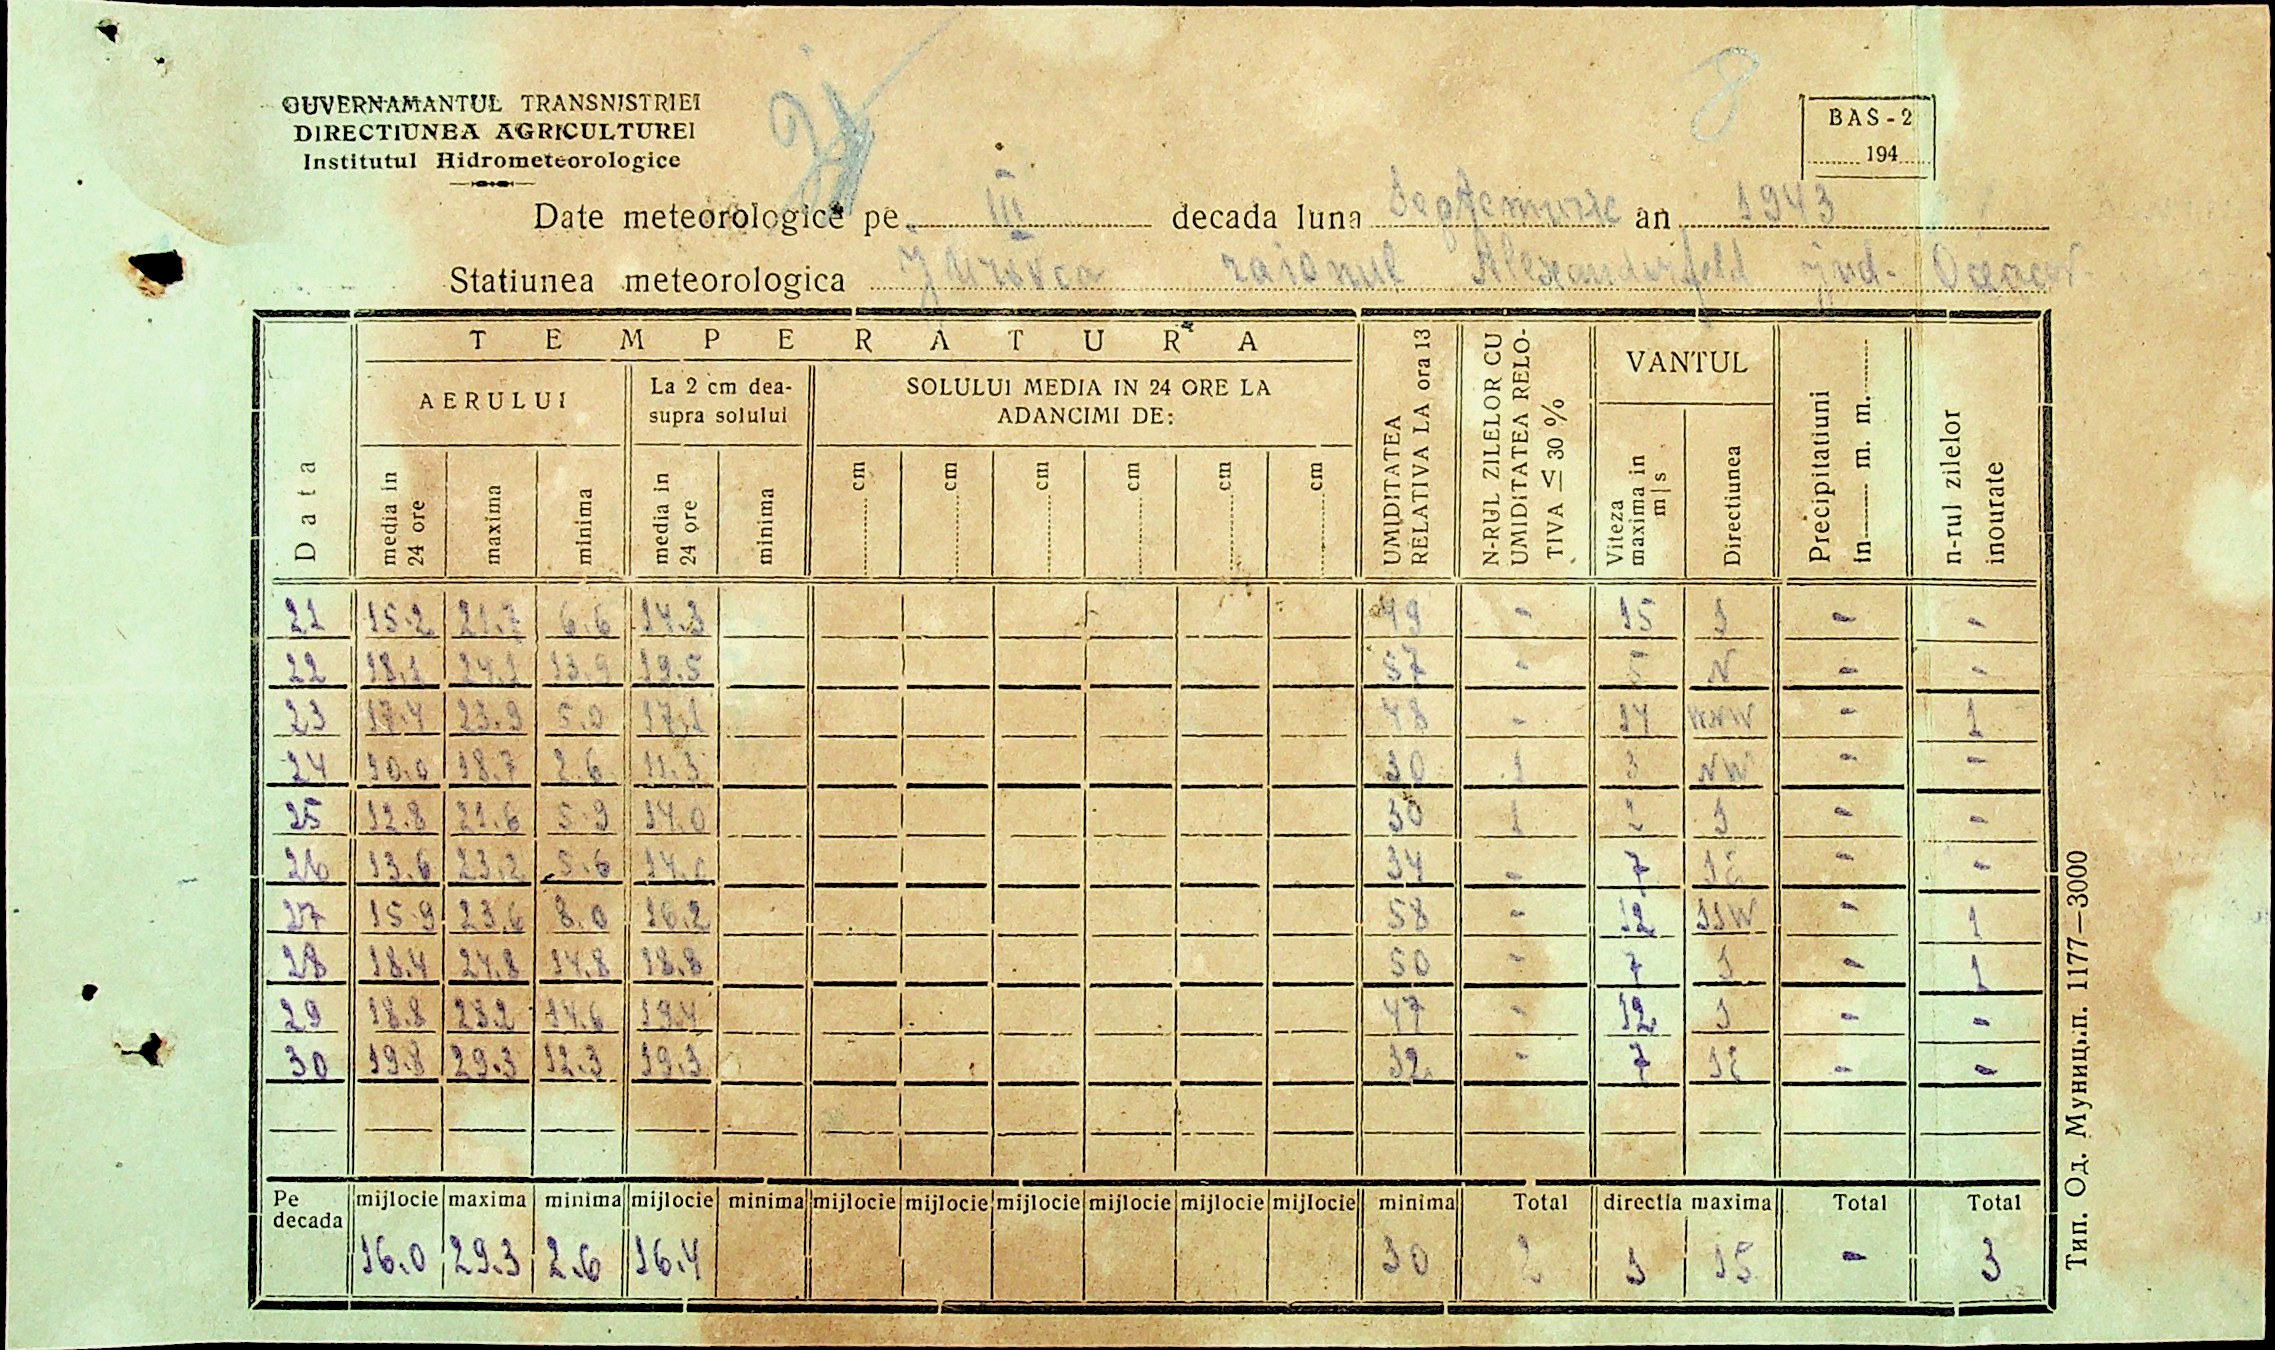 GUVERNAMANTUL TRANSNISTRIEI
DIRECTIUNEA AGRICULTUREI
Institutul Hidrometeorologice
8
BAS-2
194
Date meteorologice pe III decada luna Septemvrie an 1943
Statiunea meteorologica Jurovca raionul Alexanderfeld jud. Oceacov
Data
TEMPERATURA
AERULUI
La 2 cm dea-
supra solului
SOLULUI MEDIA IN 24 ORE LA
ADANCIMI DE:
UMIDITATEA
RELATIVA LA ora 13
N-RUL ZILELOR CU
UMIDITATEA RELO-
TIVA ≤ 30 %
VANTUL
Precipitatiuni
in m. m.
n-rul zilelor
inourate
media in
24 ore
maxima
minima
media in
24 ore
minima
cm cm cm cm cm cm
Viteza
maxima in
m|s
Directiunea
21 15.2 21.7 6.6 14.3 49 - 15 S - -
22 18.1 24.1 13.9 19.5 57 - N - -
23 17.4 23.9 5.0 17.1 48 - 14 WNW - 1
24 10.0 18.7 2.6 11.3 30 1 3 NW - -
25 12.8 21.6 5.9 14.0 30 1 S - -
26 13.6 23.2 5.6 34 - 7 SE - -
27 15.9 23.6 8.0 16.2 58 - 12 SSW - 1
28 18.4 24.8 14.8 18.8 50 - 7 S - 1
29 18.8 23.2 14.6 19.4 47 - 12 S - -
30 19.8 29.3 12.3 19.3 32 - 7 SE - -
Pe
decada
mijlocie maxima minima mijlocie minima mijlocie mijlocie mijlocie mijlocie mijlocie mijlocie minima Total directia maxima Total Total
16.0 29.3 2.6 16.4 30 2 S 15 - 3
Тип. Од. Муницип. 1177—3000